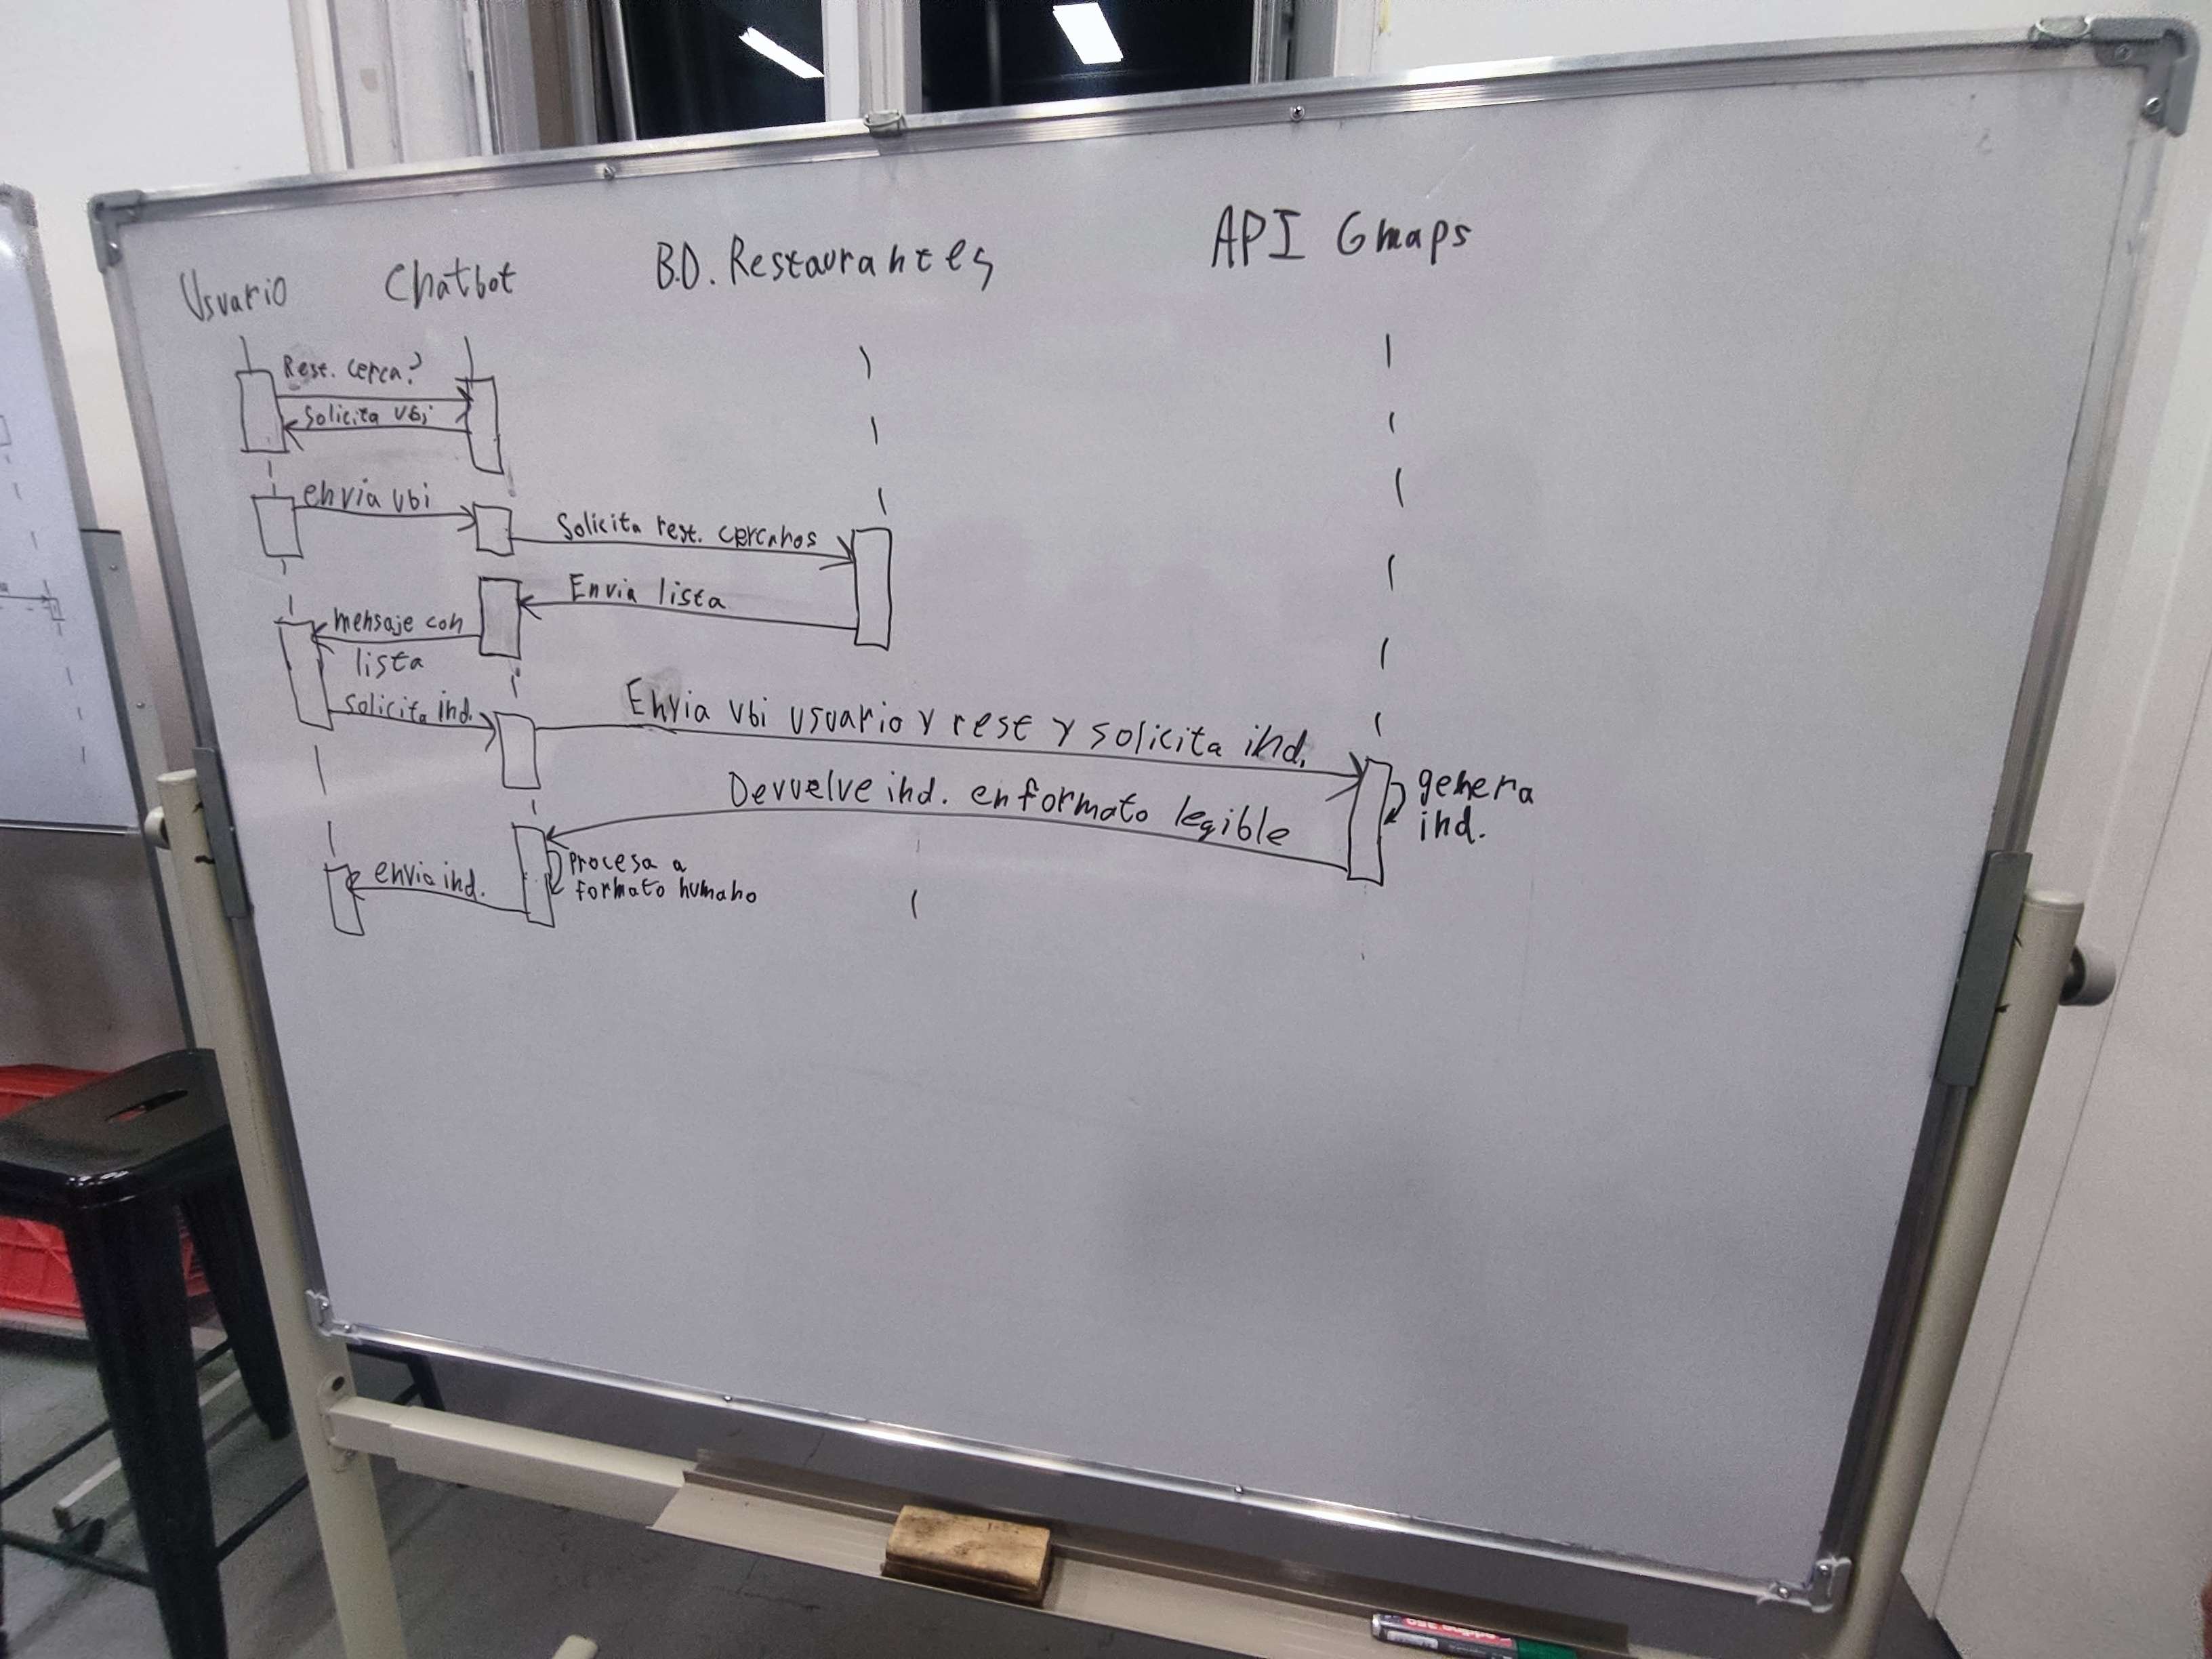 Usuario
Chatbot
B.D. Restaurantes
API Gmaps
Rest. cerca?
Solicita ubi
envia ubi
Solicita rest. cercanos
Envia lista
mensaje con
lista
solicita ind.
Envia ubi usuario y rest y solicita ind.
genera
ind.
Devuelve ind. en formato legible
Procesa a
formato humano
envia ind.